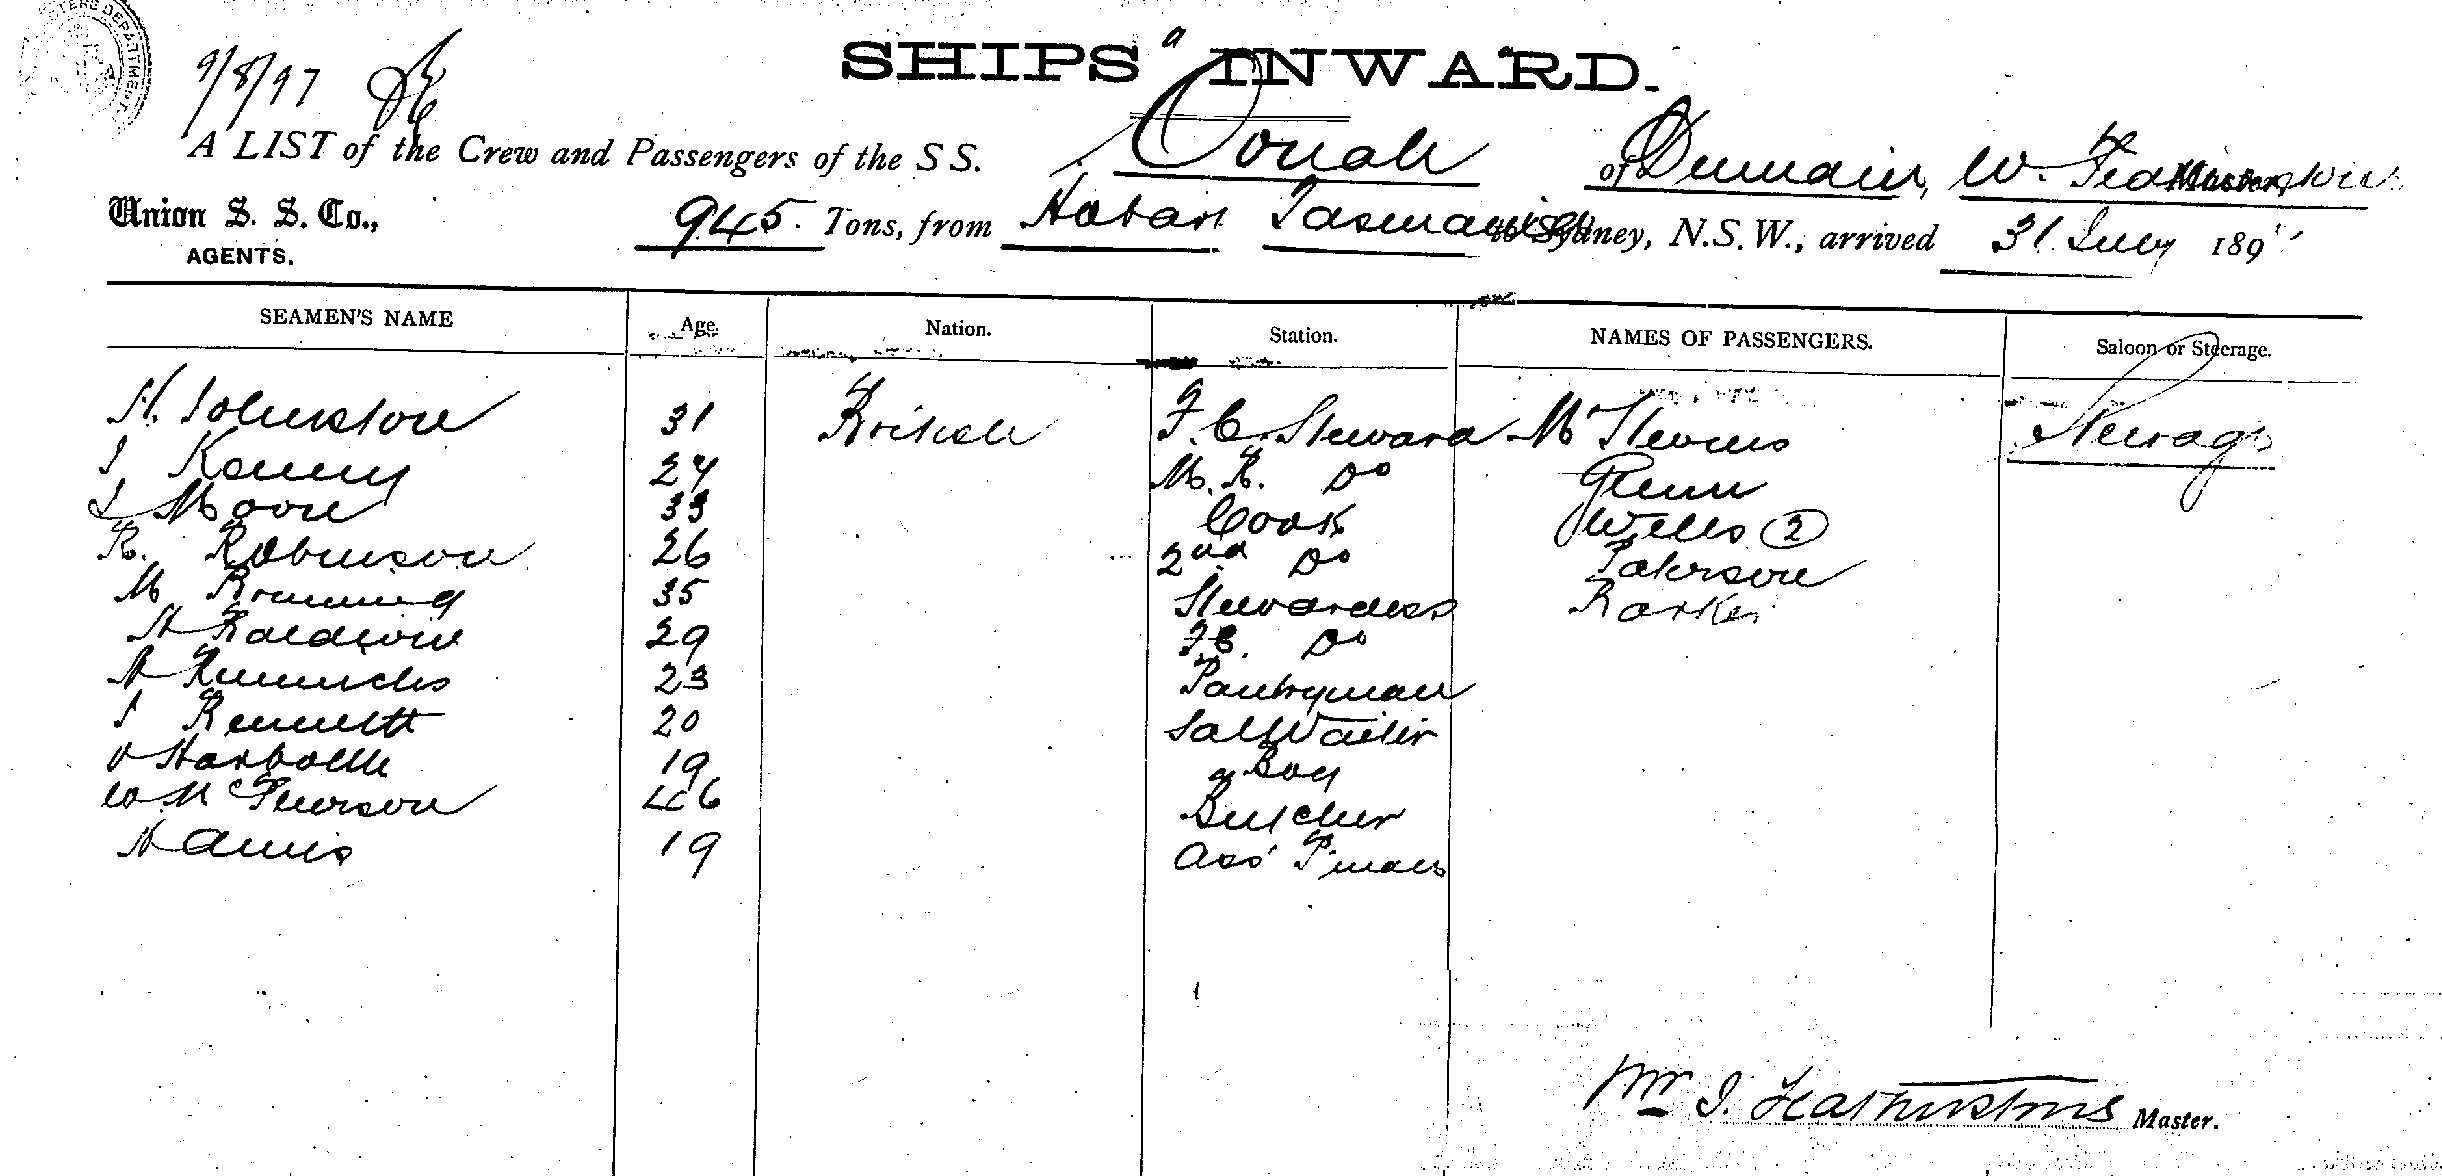 9/8/97
SHIPS INWARD.
A LIST of the Crew and Passengers of the S S. Oonah of Dunedin, W. Featherstone Master,
Union S. S. Co., 945 Tons, from Hobart Tasmania to Sydney, N.S.W., arrived 31 July 189
AGENTS.
SEAMEN'S NAME Age. Nation. Station. NAMES OF PASSENGERS. Saloon or Steerage.
H. Johnstone 31 British F. C. Steward Mr Stevens Steerage
J Kenny 24 M. R. Do Glenn
Moore 33 Cook Wells 2
R. Robinson 26 2nd Do Paterson
M 35 Stewardess Barker
H Baldwin 29 F.C. Do
H 23 Pantryman
J Bennett 20 Sal Waiter
Harbottle 19 " Boy
W McPherson 46 Butcher
H Amis 19 Ass P'man
Wm J. Featherstone Master.